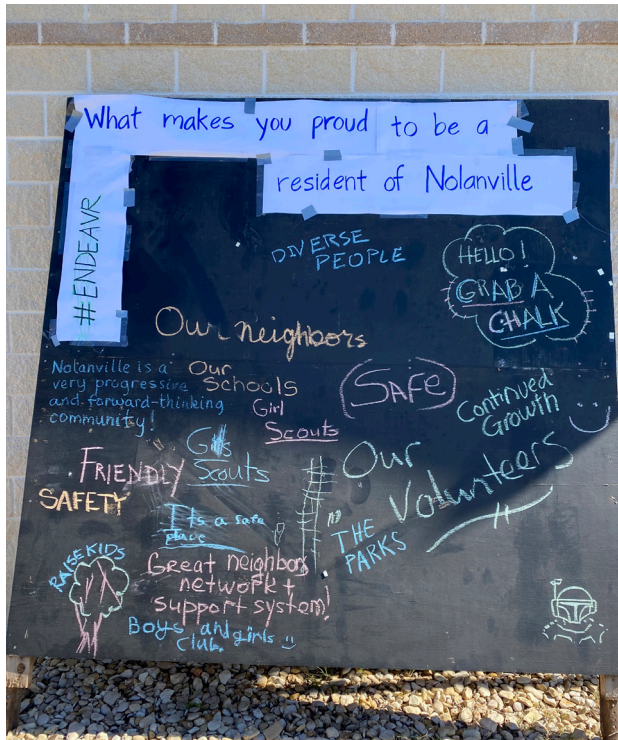 What makes you proud to be a
resident of Nolanville
#ENDEAVR
DIVERSE
PEOPLE
HELLO!
GRAB A
CHALK
Our neighbors
Nolanville is a
very progressive
and forward-thinking
community!
Our
Schools
Girl
Scouts
SAFE
Continued
Growth
FRIENDLY
Scouts
SAFETY
Our
Volunteers
Its a safe
place
THE
PARKS
RAISE KIDS
Great neighbors
network +
support system!
Boys and girls
Club.